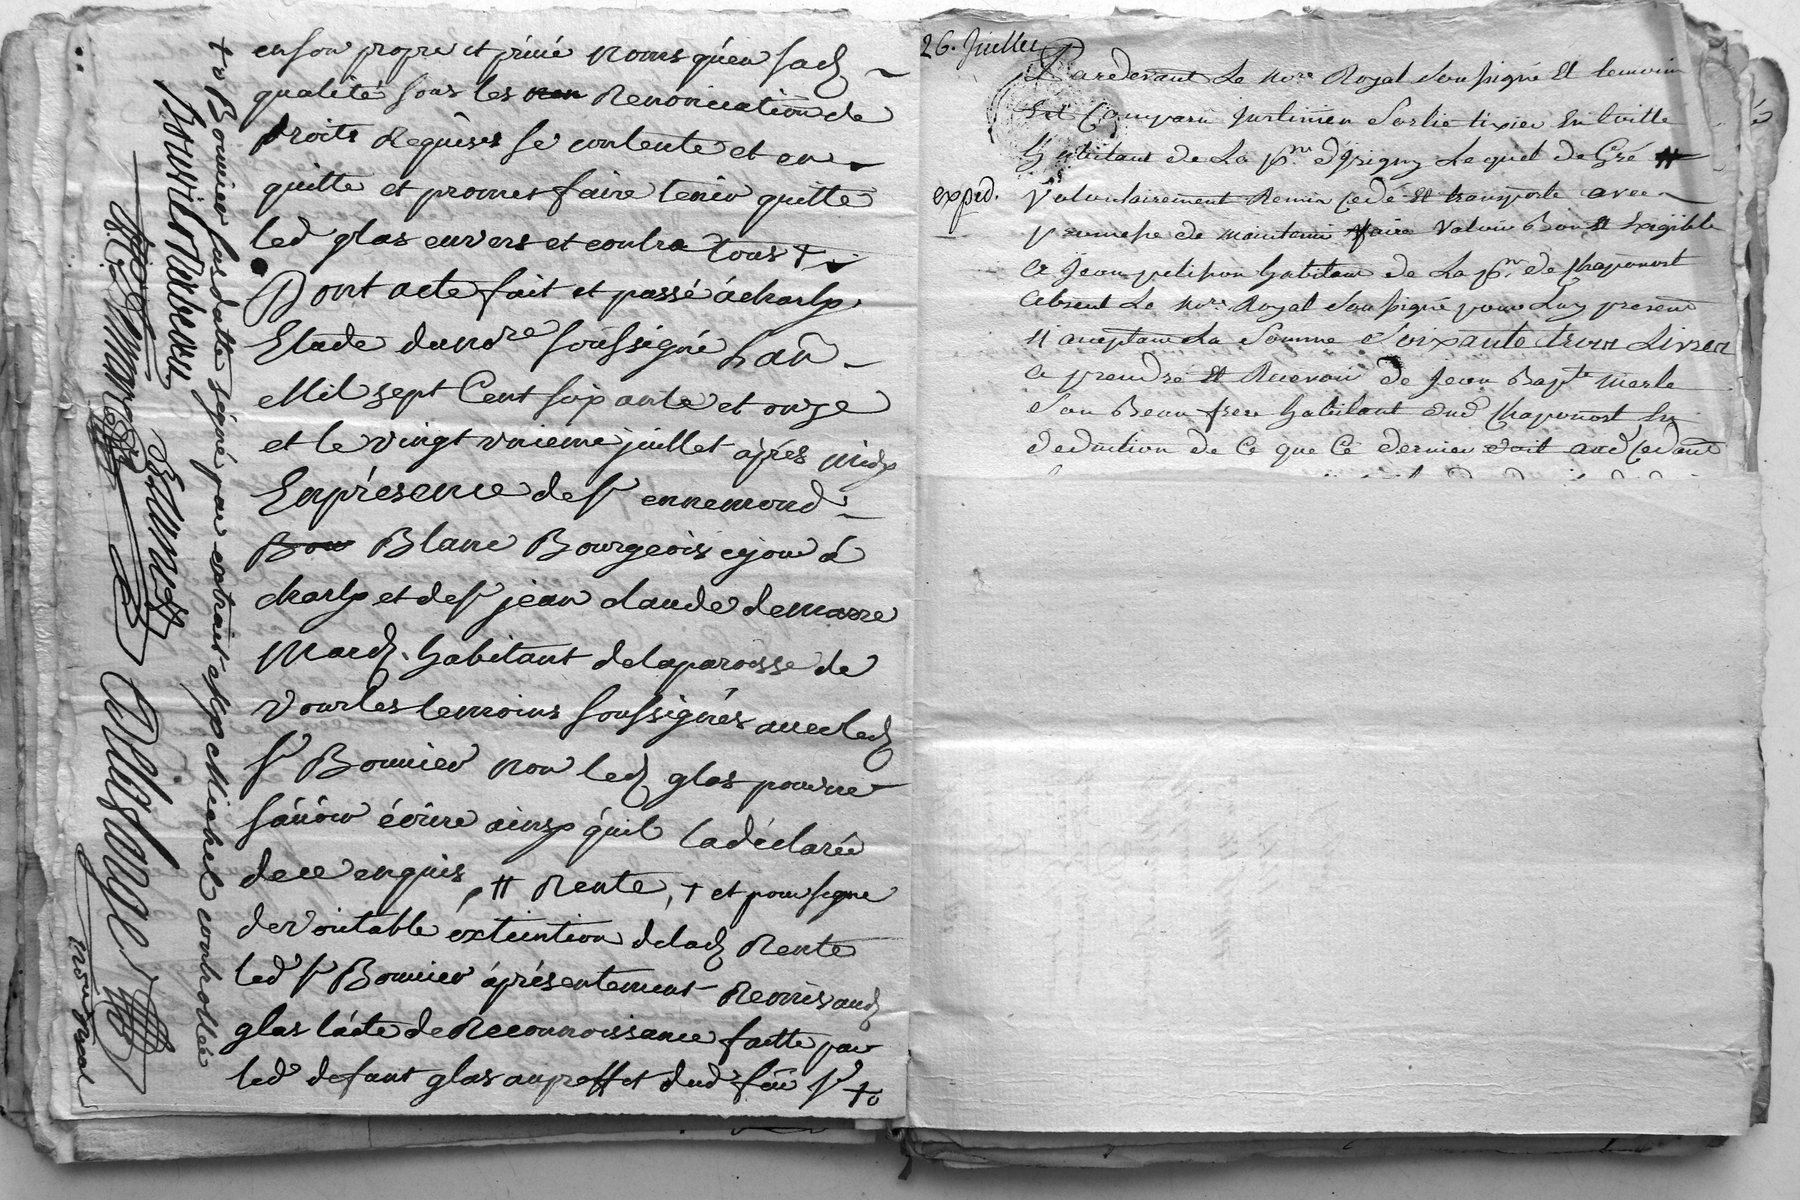 en son propre et privé noms qu'en sad
qualité sous les non Renonciation de
droits Requises se contente et en
quitte et promet faire tenir quitte
led glas envers et contre tous +
Dont acte fait et passé à charly
Etude du nore soussigné L'an
Mil sept Cent soixante et onze
et le vingt unieme juillet après midy
En présence de sr ennemond
Bou Blanc Bourgeois à
charly et de sr jean claude demarre
March. habitant de la paroisse de
vourles temoins soussignés avec led
sr Bonnier non led glas pour ne
sávoir écrire ainsy qu'il la déclaré
de ce enquis, # Rente, + et pour signe
de véritable extinction de lad Rente
led sr Bonnier àprésentement Remis aud
glas l'ácte de Reconnoissance faitte par
led défunt glas au proffit dud feu sr +o
+o Bonnier sus datté signé par extrait Michel controllée
26. Juillet
Pardevant Le Nore Royal Soussigné Et temoins
Est Comparu Justinien Sorlie tixier En toille
habitant de La psse d'Irigny Lequel de Gré #
exped.
volontairement Remis cedé Et transporté avec
promesse de maintenir faire valoir Bon Et Exigible
a Jean petisson habitant de La psse de Chaponost
absent Le Nore Royal Soussigné pour Luy present
Et aceptant La Somme Soixante trois Livres
a prendre Et Recevoir de Jean Bapte merle
Son Beau frere habitant dud Chaponost En
deduction de Ce que Ce dernier doit aud Cedant